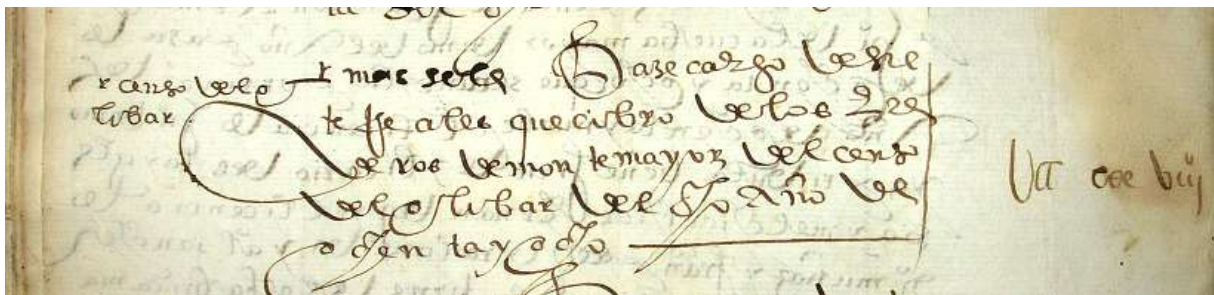 r censo del o
libar
r mas se le Haze cargo de sie
te Reales que cobro de los here
deros de montemayor del censo
del oslibar del dho Año de
ochenta y ocho